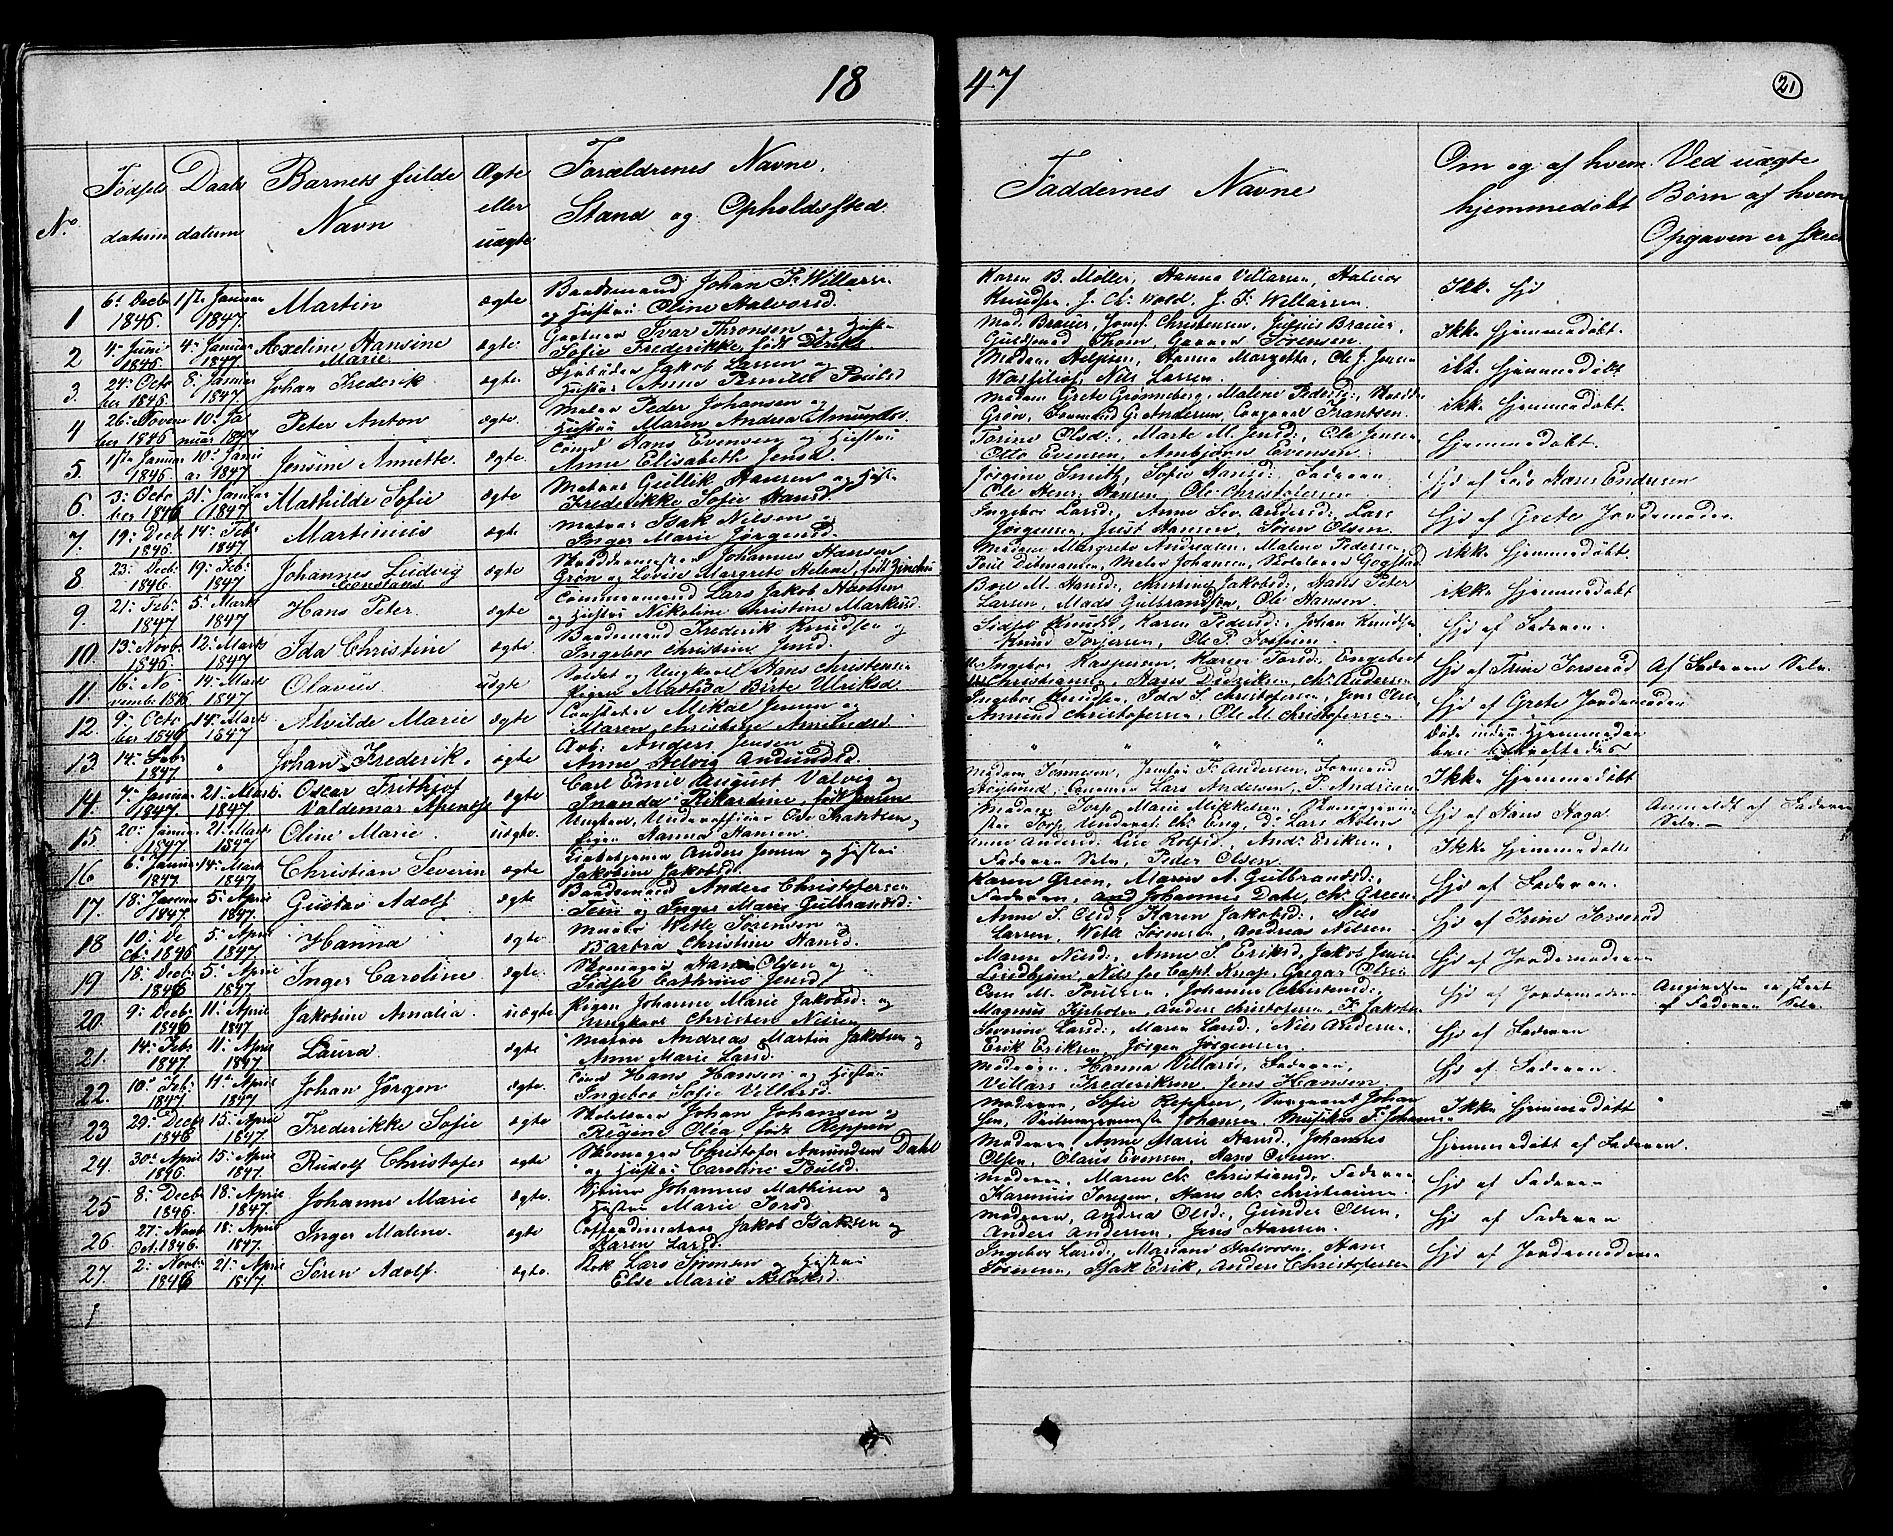 18 47
21
No
Fødsels datum
Daabs datum
Barnets fulde Navn
Ægte eller uægte
Forældrenes Navne, Stand og Opholdssted.
Faddernes Navne
Om og af hvem hjemmedøbt
Ved uægte Børn af hvem Opgaven er skeet
1 6te Decb 1846. 1ste Januar 1847. Martin ægte Baadsmand Johan F. Willars
og Hustru Oline Halvorsd. Karen B. Møller, Hanna Villarsen, Halvor Knudsen, J. Chr. Wold, J. F. Willarsen Ikke Hjd
2 4de Juni 1846. 4de Januar 1847 Axeline Hansine Marie ægte. Ivar Thronsen og Hustru
Sofie Frederikke, født Mad. Brauer, Jomf. Christensen, Julius Brauer, Guldsmed Thom, Sørensen. Ikke Hjemmedøbt.
3. 24. Octo ber 1846 8. Januar 1847 Johan Frederik. ægte. Jakob Larsen og
Hustru Anne Pernille Poulsd Madam Hanna Margrethe, Ole J. Jensen Nils Larsen. ikke hjemmedøbt
4 26. Novem ber 1846 10. Ja nuar 1847 Peter Anton ægte. Matros Peder Johansen og
Hustru Maren Andrea Amundsd Madam Grete Grønneberg, Malene Pedersd:, Grøn, Andersen, Frantsen. ikke hjemmedøbt.
5. 1ste Januar 1846 10de Janu ar 1847 Jensine Annette. ægte Hans Evensen og Hustru
Anne Elisabeth Jensd. Torine Olsd:, Marte M. Jensd:, Ole Jensen Otto Evensen, Arnbjørn Evensen. Hjemmedøbt.
6. 3. Octo ber 1846 31. Januar 1847 Mathilde Sofie ægte Matros Gullik Hansen og Hustru
Frederikke Sofie Hansd. Jørgine Smith, Sofie Hansd: Faderen, Ole Henr. Hansen, Ole Christofersen Hjd af
7. 19. Decb 1846. 14. Feb. 1847 Martinius ægte Matros Isak Nilsen og
Inger Marie Jørgensd. Ingebor Larsd:, Anne Andersd: Lars Jørgensen, Just Hansen, Søren Olsen. Hjd af Grete Jordemoder.
8 23. Decb. 1846 19. Feb. 1847 Johannes Ludvig Constans ægte Johannes Hansen
Grøn og Lovise Margrete Helene, født Madam Margrete Andreasen, Malene Pedersen, Poul Ditmansen, Peter Johansen, Skolelærer Gogstad ikke hjemmedøbt.
9. 21. Feb. 1847 5. Marts 1847 Hans Peter. ægte Lars Jakob Hansen
og Hustru Nikoline Christine Markusd Boel M. Hansd, Christine Jakobsd:, Hans Peter Larsen, Mads Gulbrandsen, Ole Hansen. ikke hjemmedøbt
10. 13. Novb. 1846 12. Marts 1847 Ida Christine ægte. Baadsmand Frederik Knudsen og
Ingebor Christine Jensd. Sidsel Knudsd, Karen Pedersd:, Johan Knudsen Knud Torjersen, Ole P. Hjd af Faderen.
11 16. No vember 1846 14. Marts 1847 Olavus uægte Soldat og Ungkarl Hans Christensen
Pigen Mathilda Birte Ulriksd. Ingebor Kaspersen, Karen Torsd:, Engebret Christiansen, Hans Chr. Andersen Hjd af Trine Af Faderen Selv.
12. 9. Octo ber 1846 14. Marts 1847 Alvilde Marie ægte Mikal Jensen og
Maren Christine Amundsd Ingebor Knudsen, Ida S. Christofersen, Jens Amund Christofersen, Ole M. Christofersen Hjd af Grete Jordemoder
13. 14. Feb. 1847 " Johan Frederik. ægte Arb. Anders Jensen og
Anne Helvig Amundsd. " " " " Døde inden Hjemmedaa ben bekræftedes
14. 7. Januar 1847. 21. Marts 1847 Oscar Frithjof Valdemar ægte Carl Emil August Valvig og
Rikardine, født Jensen Madam Tønnesen, Jomfru F. Andersen, Lars Andersen, P. Andersen Ikke Hjemmedøbt
15. 20. Januar 1847. 21. Marts 1847 Oline Marie. uægte. Ungkarl, Underofficier Ole Frantsen og
Pigen Hanna Hansen. Madam Torp, Marie Mikkelsen, Torp, Underof. Chr. Eng, Do Lars Hjd af Hans Haga Anmeldt af Faderen Selv. —
16 6. Januar 1847. 14. Marts 1847. Christian Severin ægte Anders Jensen og Hustru
Jakobine Jakobsd. Anne Andersd: And: Eriksen, Faderen Selv, Peder Olsen. Ikke Hjemmedøbt
17. 18. Januar 1847 5. April 1847. Gustav Adolf. ægte Baadsmand Anders Christofersen
og Inger Marie Gulbrandsd: Karen Green, Maren A. Gulbrandsd:, Faderen, Johannes Dahl, Chr. Green Hjd af Faderen.
18 10. De cb. 1846 5. April 1847 Hanna ægte. Wetle Sørensen og
Barbra Christine Hansd. Anne S. Olsd, Karen Jakobsd:, Nils Larsen, Wetle Sørensen, Andreas Nilsen Hjd af Trine
19 18. Decb. 1846 5. April 1847 Inger Caroline ægte. Skomager Hans Olsen og
Sidsel Cathrine Jensd Maren Nilsd:, Anne S. Eriksd, Jakob Jensen Lindbjem, Capt. Knap, Gregar Olsen Hjd af Jordemoderen
20. 9. Decb. 1846 11. April 1847 Jakobine Amalia. uægte Pigen Johanne Marie Jakobsd: og
Ungkarl Christen Nilsen M. Poulsen, Johanne Christensd:, Magnus Anders Christofersen, F. Jakobsen Hjd af Jordemoderen Angivelsen er skeet af Faderen Selv.
21. 14. Feb. 1847 11. April 1847 Laura. ægte Matros Andreas Martin Jakobsen og
Anne Marie Larsd. Severine Larsd:, Maren Larsd, Nils Andersen Erik Eriksen, Jørgen Jørgensen. Hjd af Faderen
22. 10. Feb. 1847 11. April 1847 Johan Jørgen ægte. Hans Hansen og Hustru
Ingebor Sofie Villarsd. Moderen, Hanna Villarsd, Faderen, Villars Frederiksen, Jens Hansen. Hjd af Faderen.
23 29. Decb 1846 15. April 1847. Frederikke Sofie ægte Johan Johansen og
Regine Olea, født Reppen Moderen, Sofie Reppen, Sergeant Johan sen, Johansen, Musikus F. Johansen Ikke Hjemmedøbt
24. 30. April 1846. 15. April 1847. Rudolf Christofer ægte Skomager Christofer Amundsen Dahl
og Hustru Caroline Poulsd. Moderen Anne Marie Hansd, Johannes Olsen, Olaus Evensen, Hans Ovesen. Hjemmedøbt af Faderen.
25 8. Decb 1846 18. April 1847. Johanne Marie ægte. Johannes Mathisen og
Hustru Marie Torsd. Moderen, Maren Chr. Christiansd, Faderen Rasmus Hans Chr. Christiansen. Hjd af Faderen
26. 27. Novb Oct. 1846. 18. April 1847. Inger Malene. ægte Jakob Isaksen og
Karen Larsd. Moderen, Andrea Olsd:, Gunder Olsen, Anders Andersen, Jens Hansen. Hjd af Faderen
27. 2. Novb. 1846 21. April 1847. Søren Adolf. ægte. Lars Sørensen og Hustru
Else Marie Ingebor Larsd:, Mariane Halvorsen, Hans Sørensen, Isak Erik, Anders Christofersen Hjd af Jordemoderen